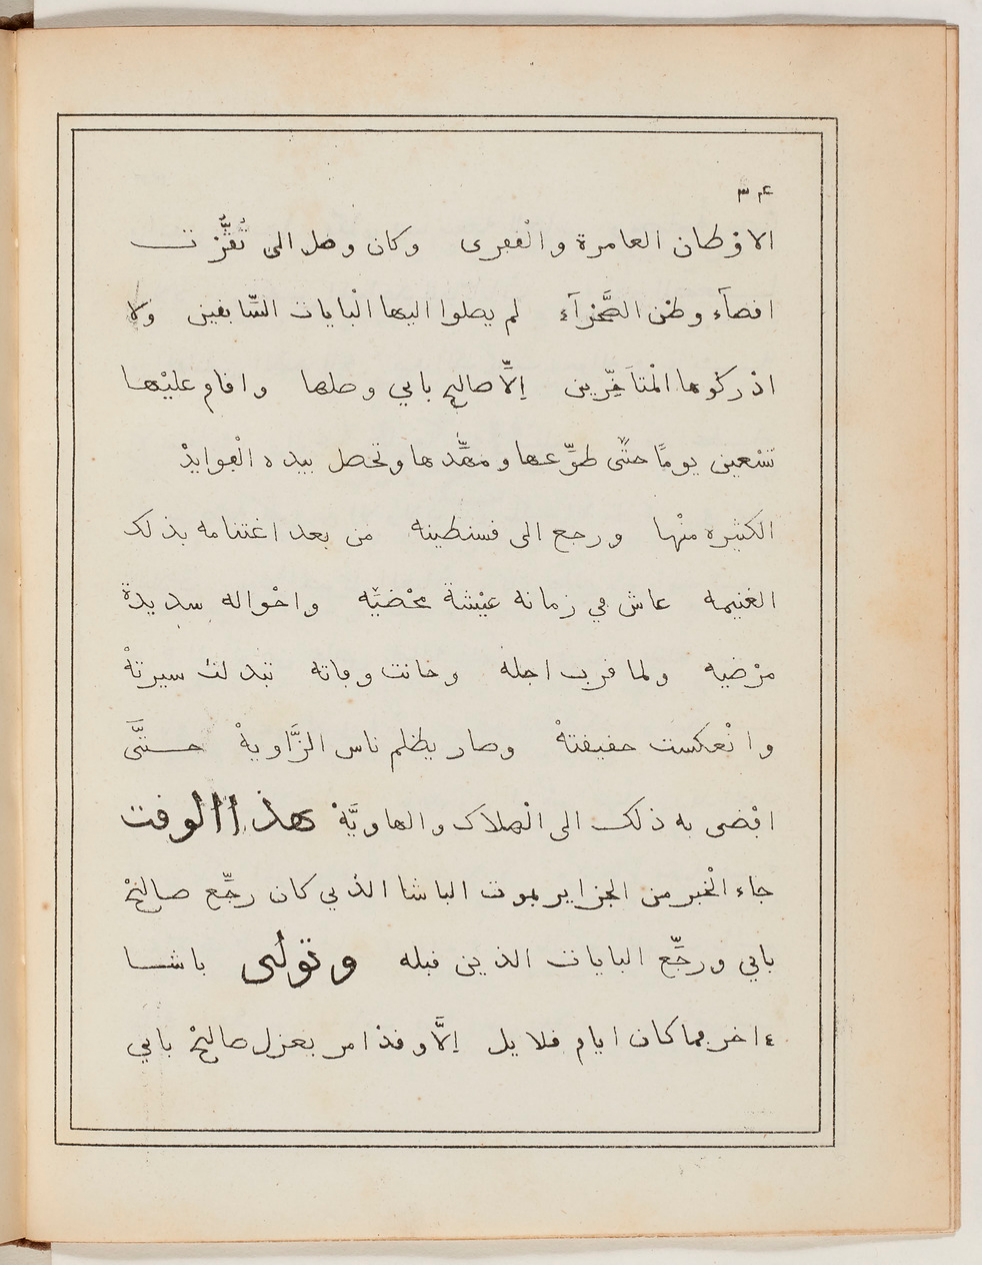 ٣٤
الاوْطان العامرة والْقرى وكان وصل الى تُقُّرْت
اقصآء وطْن الصَّحْرَآء لم يصلوا اليها الْبايات السَّابقين ولا
ادْركُوها الْمتأخِّرين إلاَّ صالح باي وصلها واقام عليْها
تسْعين يومًا حتَّى طوَّعها ومهَّدها وتحصل بيده الْفوايدْ
الكثيره منْها ورجع الى قسنطينه من بعد اغتنامه بذلك
الغنيمه عاش في زمانه عيْشة مَحْضيَّه واحْواله سديدة
مرْضيه ولما قرب اجلهْ وحانت وفاته تبدلتْ سيرتهْ
وانْعكست حقيقتهْ وصار يظلم ناس الزَّاويهْ حتَّى
افْضى به ذلك الى الْهلاك والهاويَّهْ هذا الوقت
جاء الْخبر من الجزاير بموت الباشا الذي كان رجَّع صالحْ
باي ورجَّع البايات الذين قبله وتولى باشا
ءاخر مما كان ايام قلايل إلاَّ وقدْ امر بعزل صالحْ باي